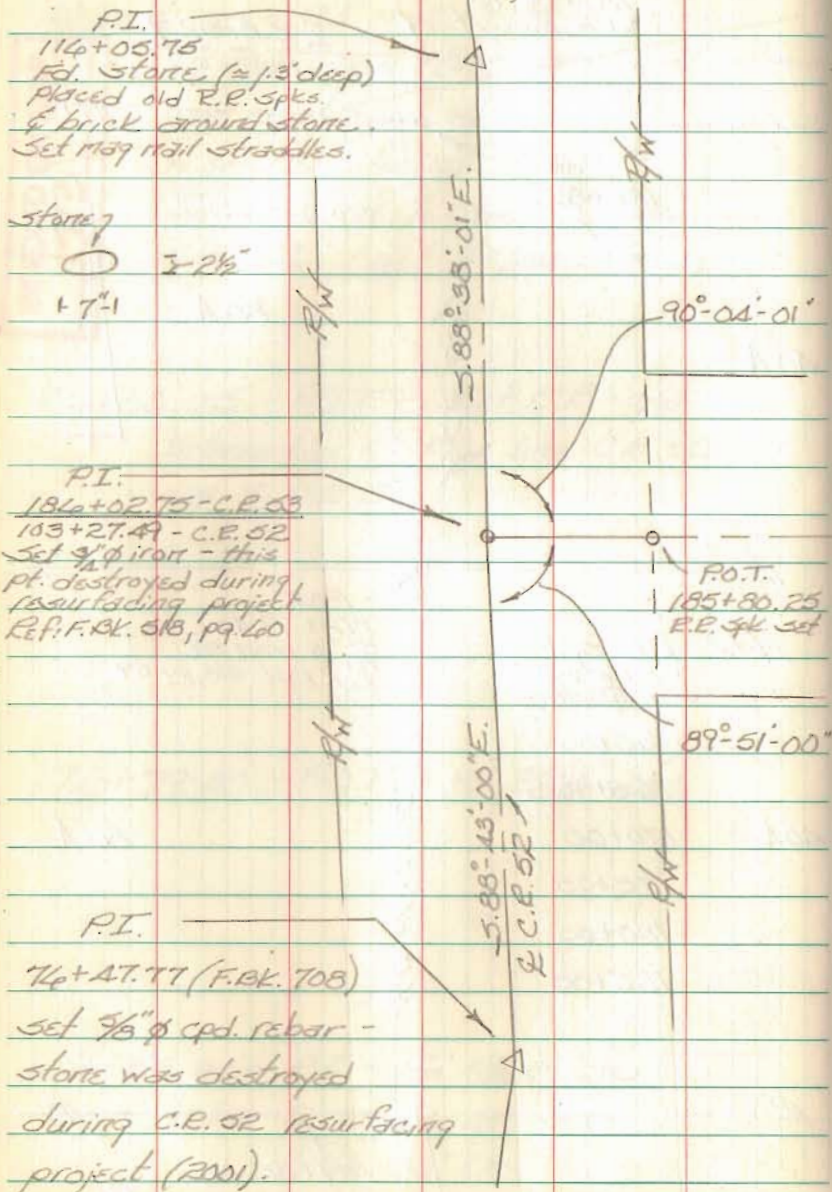 P.I.
116+05.75
Fd. stone (≈1.3' deep)
placed old R.R. spks.
& brick around stone.
Set mag nail straddles.
stone
7"
2½"
R/W
R/W
S.88°-38'-01"E.
90°-04'-01"
P.I.
186+02.75 - C.R. 53
103+27.49 - C.R. 52
Set ¾"φ iron - this
pt. destroyed during
resurfacing project
Ref: F.BK. 518, pg. 60
P.O.T.
185+80.25
R.R. spk. set
89°-51'-00"
R/W
S.88°-43'-00"E.
℄ C.R. 52
R/W
P.I.
76+47.77 (F.BK. 708)
set 5/8"φ cpd. rebar -
stone was destroyed
during C.R. 52 resurfacing
project (2001).